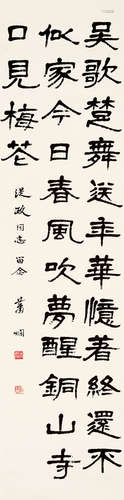 吴歌楚舞送年華憶著終還不
似家今日春風吹夢醒銅山寺
口見梅花
漢政同志留念 蕭嫻